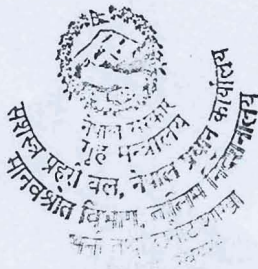 नेपाल सरकार
गृह मन्त्रालय
सशस्त्र प्रहरी बल, नेपाल प्रधान कार्यालय
मानवश्रोत विभाग, तालिम निर्देशनालय
भर्ना तथा छनौट शाखा